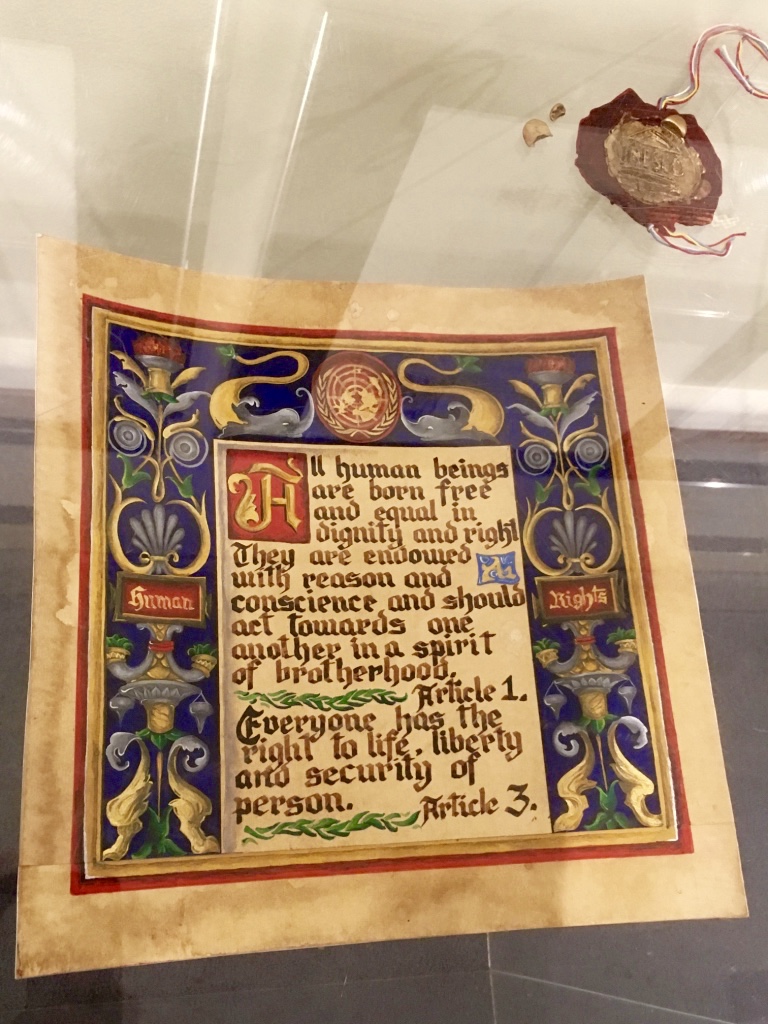 All human beings
are born free
and equal in
dignity and right
They are endowed
with reason and
conscience and should
act towards one
another in a spirit
of brotherhood.
Article 1.
Everyone has the
right to life, liberty
and security of
person. Article 3.
Human
Rights